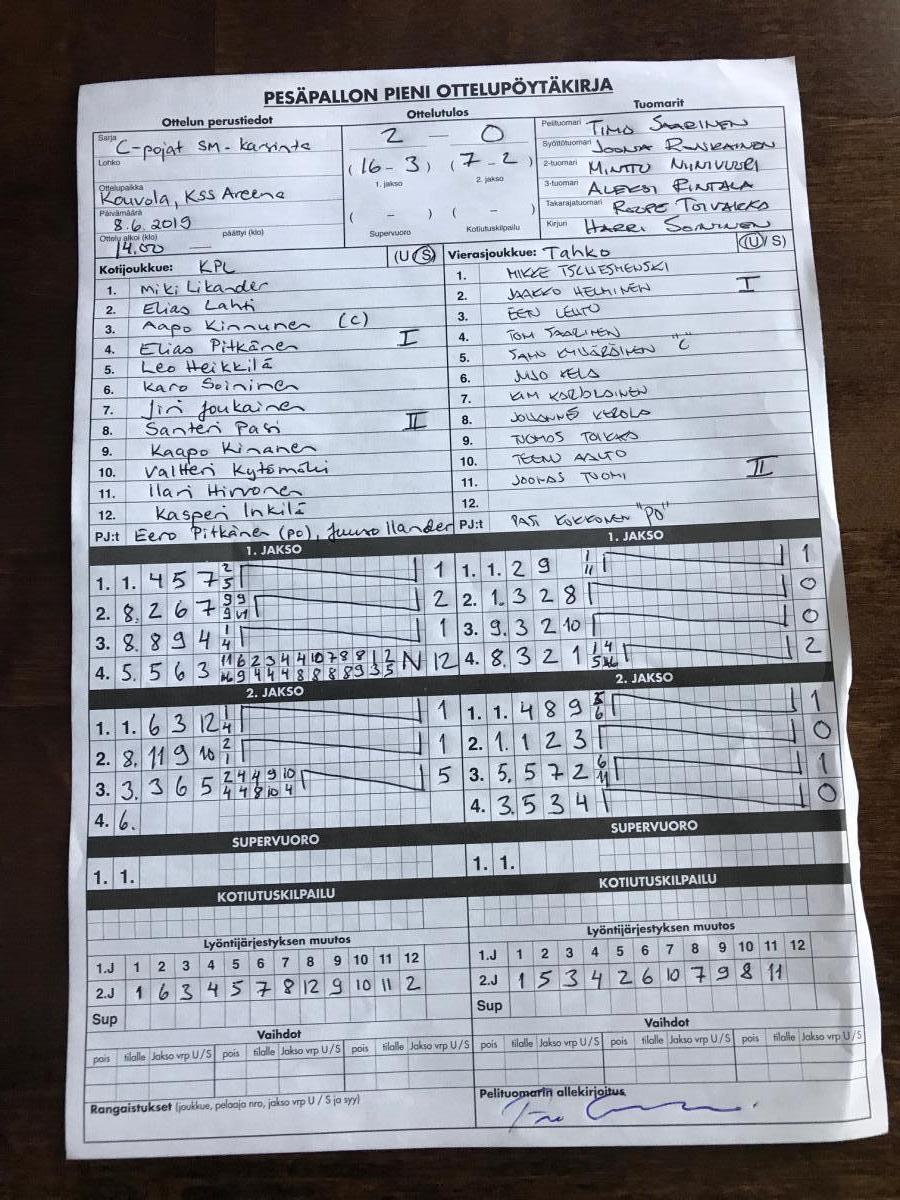 PESÄPALLON PIENI OTTELUPÖYTÄKIRJA
Ottelun perustiedot
Sarja C-pojat SM-karsinta
Lohko
Ottelupaikka Kouvola, KSS Areena
Päivämäärä 8.6.2019
Ottelu alkoi (klo) 14.00 — päättyi (klo)
Ottelutulos
2 — 0
(16-3) (7-2)
1. jakso 2. jakso
( - ) ( - )
Supervuoro Kotiutuskilpailu
Tuomarit
Pelituomari TIMO SAARINEN
Syöttötuomari JOONA
2-tuomari MINTTU NIINIVUORI
3-tuomari ALEKSI RINTALA
Takarajatuomari ROOPE TOIVAKKO
Kirjuri HARRI SOININEN
Kotijoukkue: KPL (U/S)
1. Miki Likander
2. Elias Lahti
3. Aapo Kinnunen (C)
4. Elias Pitkänen I
5. Leo Heikkilä
6. Karo Soininen
7. Jiri Joukainen
8. Santeri Pasi II
9. Kaapo Kinanen
10. Valtteri Kytömäki
11. Ilari Hirvonen
12. Kasperi Inkilä
PJ:t Eero Pitkänen (PO), Juuso Ilander
Vierasjoukkue: Tahko (U/S)
1. MIKKE TSCHESMENSKI
2. JAAKKO HELMINEN I
3. EEN LEHTO
4. TOM SAARINEN
5. SAMU "C"
6. JUSO KELA
7. KIM KARJALAINEN
8. JOHANNES KEROLA
9. TUOMAS TOIKKO
10. TEEMU AALTO
11. JOONAS TUOMI II
12.
PJ:t PASI KOKKONEN "PO"
1. JAKSO
1. 1. 4 5 7 2 1
5
2. 8. 2 6 7 9 9 2
9 V1
3. 8. 8 9 4 1 1
4
4. 5. 5 6 3 11 6 2 3 4 4 10 7 8 8 1 2 N 12
9 4 4 4 8 8 8 8 9 3 5
1. JAKSO
1. 1. 2 9 1 1
11
2. 1. 3 2 8 0
3. 9. 3 2 10 0
4. 8. 3 2 1 1 4 2
5
2. JAKSO
1. 1. 6 3 12 1 1
4
2. 8. 11 9 10 2 1
1
3. 3. 3 6 5 2 4 4 9 10 5
4 4 8 10 4
4. 6.
2. JAKSO
1. 1. 4 8 9 1
6
2. 1. 1 2 3 0
3. 5. 5 7 2 6 1
11
4. 3. 5 3 4 0
SUPERVUORO
1. 1.
SUPERVUORO
1. 1.
KOTIUTUSKILPAILU
KOTIUTUSKILPAILU
Lyöntijärjestyksen muutos
1.J 1 2 3 4 5 6 7 8 9 10 11 12
2.J 1 6 3 4 5 7 8 12 9 10 11 2
Sup
Lyöntijärjestyksen muutos
1.J 1 2 3 4 5 6 7 8 9 10 11 12
2.J 1 5 3 4 2 6 10 7 9 8 11
Sup
Vaihdot
pois tilalle Jakso vrp U/S pois tilalle Jakso vrp U/S pois tilalle Jakso vrp U/S
Vaihdot
pois tilalle Jakso vrp U/S pois tilalle Jakso vrp U/S pois tilalle Jakso vrp U/S
Rangaistukset (joukkue, pelaaja nro, jakso vrp U / S ja syy)
Pelituomarin allekirjoitus